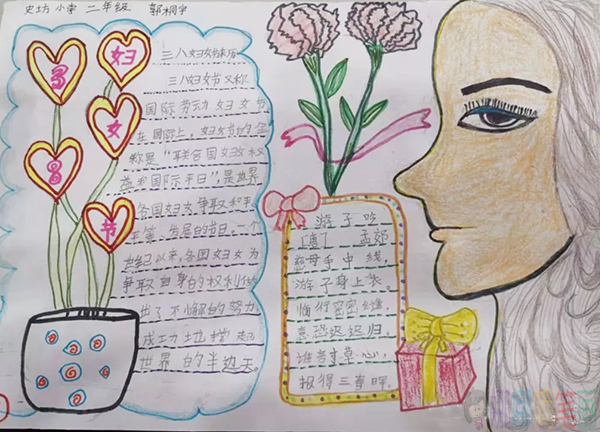 史坊小学 二年级 郭桐宇
三八妇女节
三八妇女节来历
三八妇女节又称
国际劳动妇女节
在国际上,妇女节的全
称是“联合国妇女权
益和国际和平日”,是世界
各国妇女争取和平
平等、发展的节日。一个
世纪以来,各国妇女为
争取自身的权利付
出了不懈的努力,
成功地撑起
世界的半边天。
游子吟
[唐] 孟郊
慈母手中线,
游子身上衣。
临行密密缝,
意恐迟迟归。
谁言寸草心,
报得三春晖。